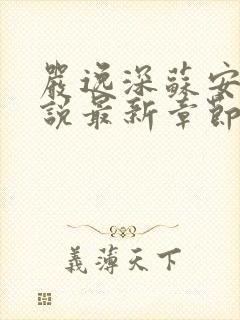 嚴逸深蘇安
說最新章節
義薄天下